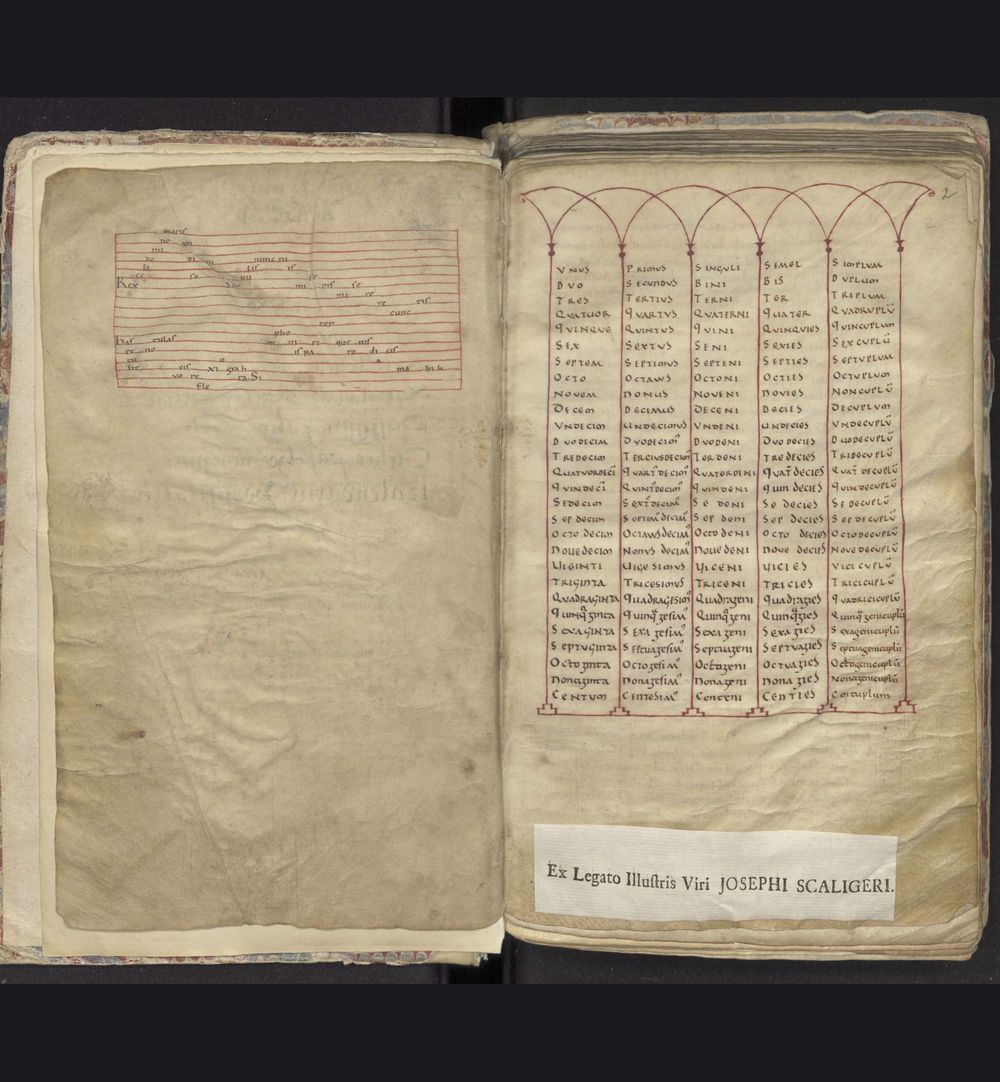 maris
ne un
mi
de di ni nunc tu
li tis is
ce so mu se
Rex ser mi ris se
mi re
re eis
cunc
ter
pho
has tulas m ni ri que nis
re no is pa to di cis
tu o a
sir cis xi grah ma bi li
vo re ta. Si
fle
2
2
VNUS PRIMUS SINGULI SEMEL SIMPLUM
DVO SECUNDUS BINI BIS DVPLUM
TRES TERTIUS TERNI TER TRIPLUM
QUATUOR QVARTUS QUATERNI QUATER QVADRUPLŪ
QUINQUE QUINTUS QUINI QUINQUIES QUINCUPLUM
SEX SEXTUS SENI SEXIES SEXCUPLŪ
SEPTEM SEPTIMUS SEPTENI SEPTIES SEPTUPLUM
OCTO OCTAUUS OCTONI OCTIES OCTUPLUM
NOVEM NONUS NOVENI NOVIES NONCUPLŪ
DECEM DECIMUS DECENI DECIES DECUPLUM
VNDECIM UNDECIMUS VNDENI UNDECIES VNDECUPLŪ
DUODECIM DVODECIM᷒ DVODENI DUODECIES DUODECUPLŪ
TREDECIM TERCIUSDECIM᷒ TERDENI TREDECIES TRIDECUPLŪ
QUATUORDECĪ QUART᷒DECIM᷒ QUATERDENI QUAT᷒DECIES QUAT᷒DECUPLŪ
QUINDECĪ QUINT᷒DECIM᷒ QUINDENI QUINDECIES QUINDECUPLŪ
SEDECIM SEXT᷒DECIM᷒ SEDENI SEDECIES SEDECUPLŪ
SEPDECIM SEPTIM᷒DECIM᷒ SEPDENI SEPDECIES SEPDECUPLŪ
OCTODECIM OCTAUUSDECIM᷒ OCTODENI OCTODECIES OCTODECUPLŪ
NOUEDECIM NONUSDECIM᷒ NOUEDENI NOUEDECIES NOUEDECUPLŪ
UIGINTI UIGESIMUS UICENI UICIES VICICUPLŪ
TRIGINTA TRICESIMUS TRICENI TRICIES TRICICUPLŪ
QUADRAGINTA QUADRAGESIM᷒ QUADRAGENI QUADRAGIES QUADRICICUPLŪ
QUINQ᷒GINTA QUINQ᷒GESIM᷒ QUINQ᷒GENI QUINQ᷒GIES QUINQ᷒GENICUPLŪ
SEXAGINTA SEXAGESIM᷒ SEXAGENI SEXAGIES SEXAGENICUPLŪ
SEPTUGINTA SEPTUAGESIM᷒ SEPTUAGENI SEPTUAGIES SEPTUAGENICUPLŪ
OCTOGINTA OCTOGESIM᷒ OCTAGENI OCTUAGIES OCTOGENICUPLŪ
NONAGINTA NONAGESIM᷒ NONAGENI NONAGIES NONAGENICUPLŪ
CENTUM CENTESIM᷒ CENTENI CENTIES CENTUPLUM
Ex Legato Illuſtris Viri JOSEPHI SCALIGERI.